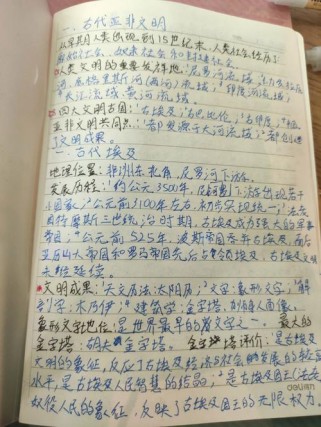 一、古代亚非文明
从早期人类出现到15世纪末，人类社会经历了
原始社会、奴隶社会和封建社会。
人类文明的重要发祥地：尼罗河流域、幼发拉底
河、底格里斯河（两河）流域、印度河流域、
长江流域、黄河流域。
四大文明古国：古埃及、古巴比伦、古印度、中国
亚非文明共同点：都发源于大河流域；都创造
了文明成果。
一古代埃及
地理位置：非洲东北角，尼罗河下游。
发展历程：约公元前3500年，尼罗河下游出现若干
小国家；公元前3100年左右，初步实现统一；法老
图特摩斯三世统治时期，古埃及成为强大的军事
帝国；公元前525年，波斯帝国吞并古埃及，而后
亚历山大帝国和罗马帝国先后占领埃及，古埃及文明
未能延续。
文明成果：天文历法：太阳历；文字：象形文字；解
剖学：木乃伊；建筑学：金字塔，狮身人面像。
象形文字地位：是世界最早的文字之一。最大的
金字塔：胡夫金字塔。金字塔评价：是古埃及
文明的象征，反应了古埃及经济与社会发展的较高
水平，是古埃及人民智慧的结晶；是古埃及国王（法老）
奴役人民的象征，反映了古埃及国王的无限权力。
deli